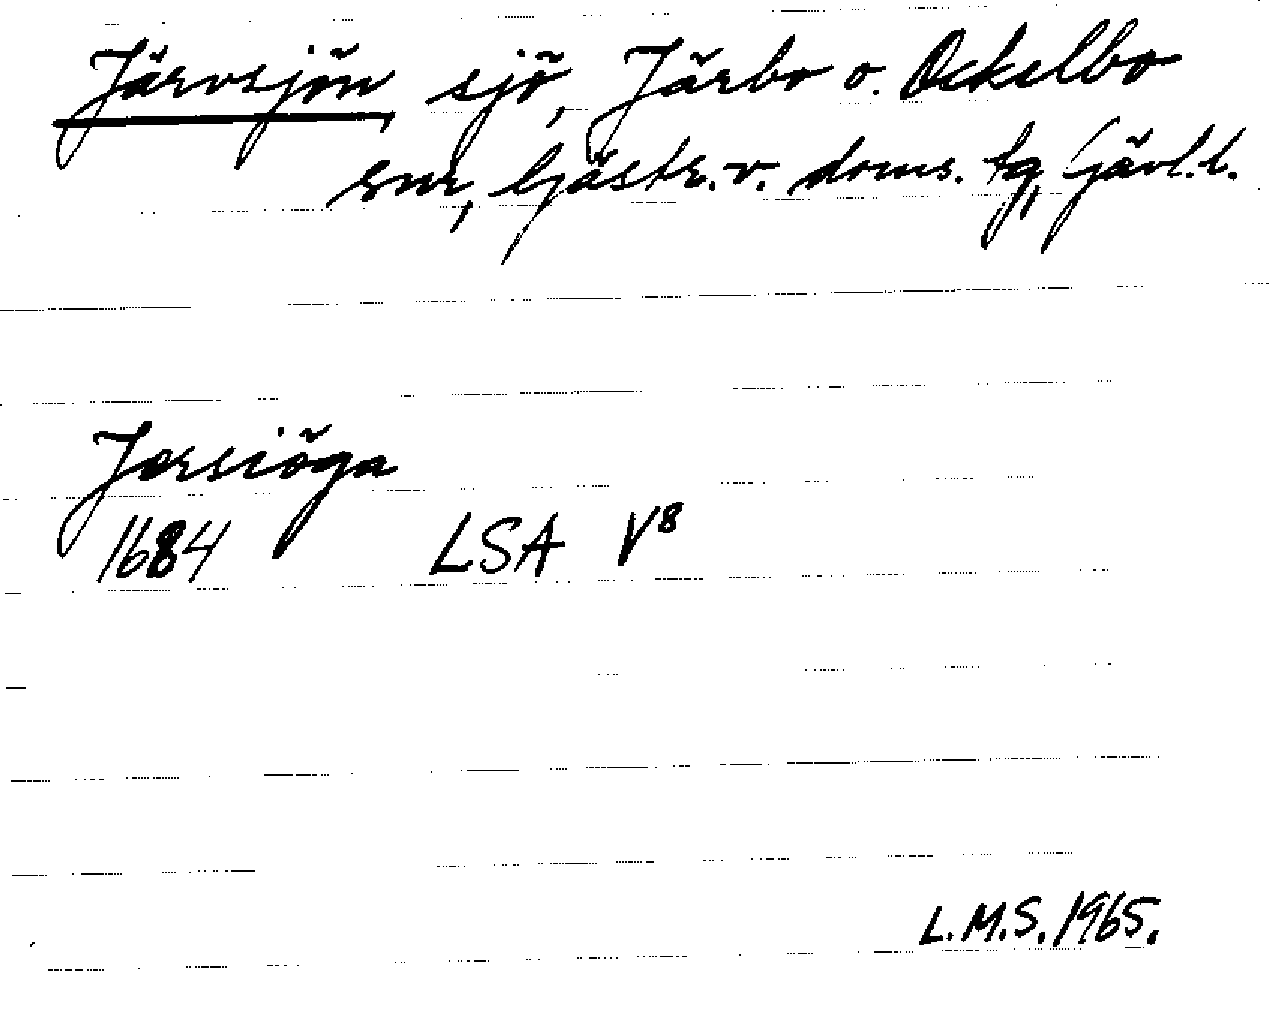 Järvsjön, sjö, Järbo o. Ockelbo
snr, Gästr. v. doms. tg, Gävl.l.
Jersiöga
1684 LSA V8
L.M.S. 1965.